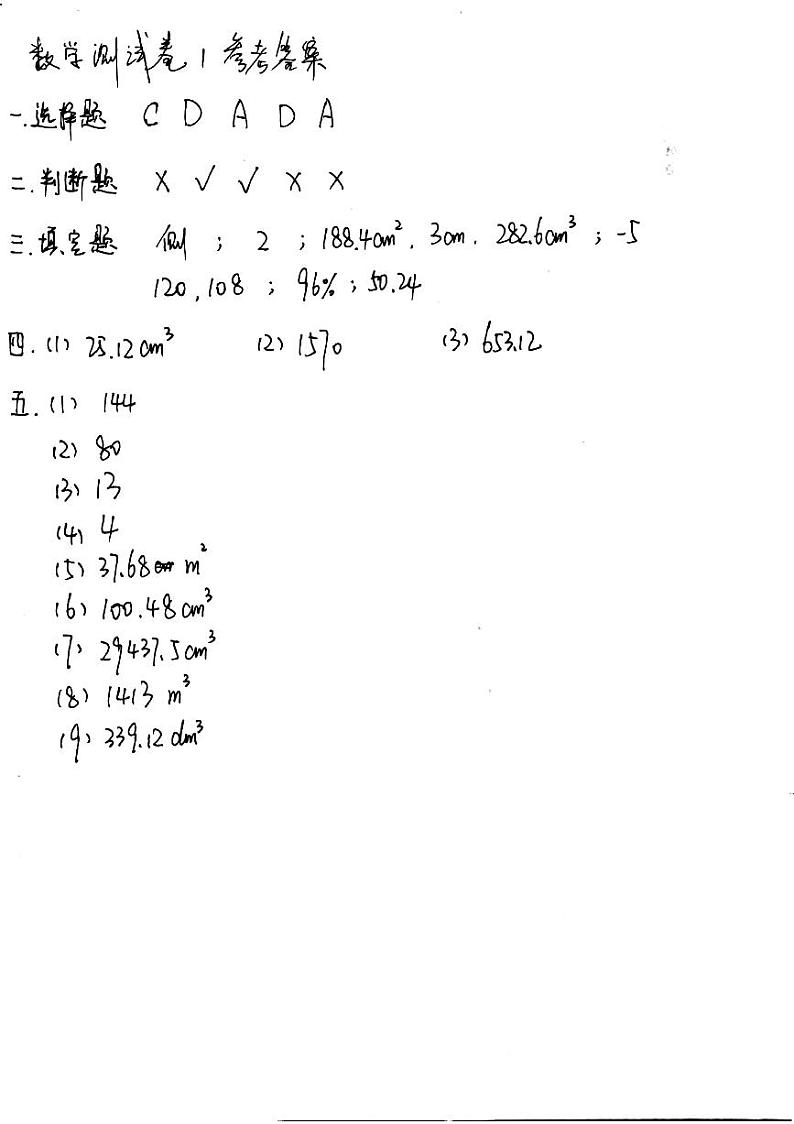 数学测试卷1参考答案
一.选择题 C D A D A
二.判断题 × √ √ × ×
三.填空题 侧 ; 2 ; 188.4cm², 3cm, 282.6cm³ ; -5
120, 108 ; 96% ; 50.24
四.(1) 25.12cm³ (2) 1570 (3) 653.12
五.(1) 144
(2) 80
(3) 13
(4) 4
(5) 37.68 m²
(6) 100.48cm³
(7) 29437.5cm³
(8) 1413 m³
(9) 339.12 dm³